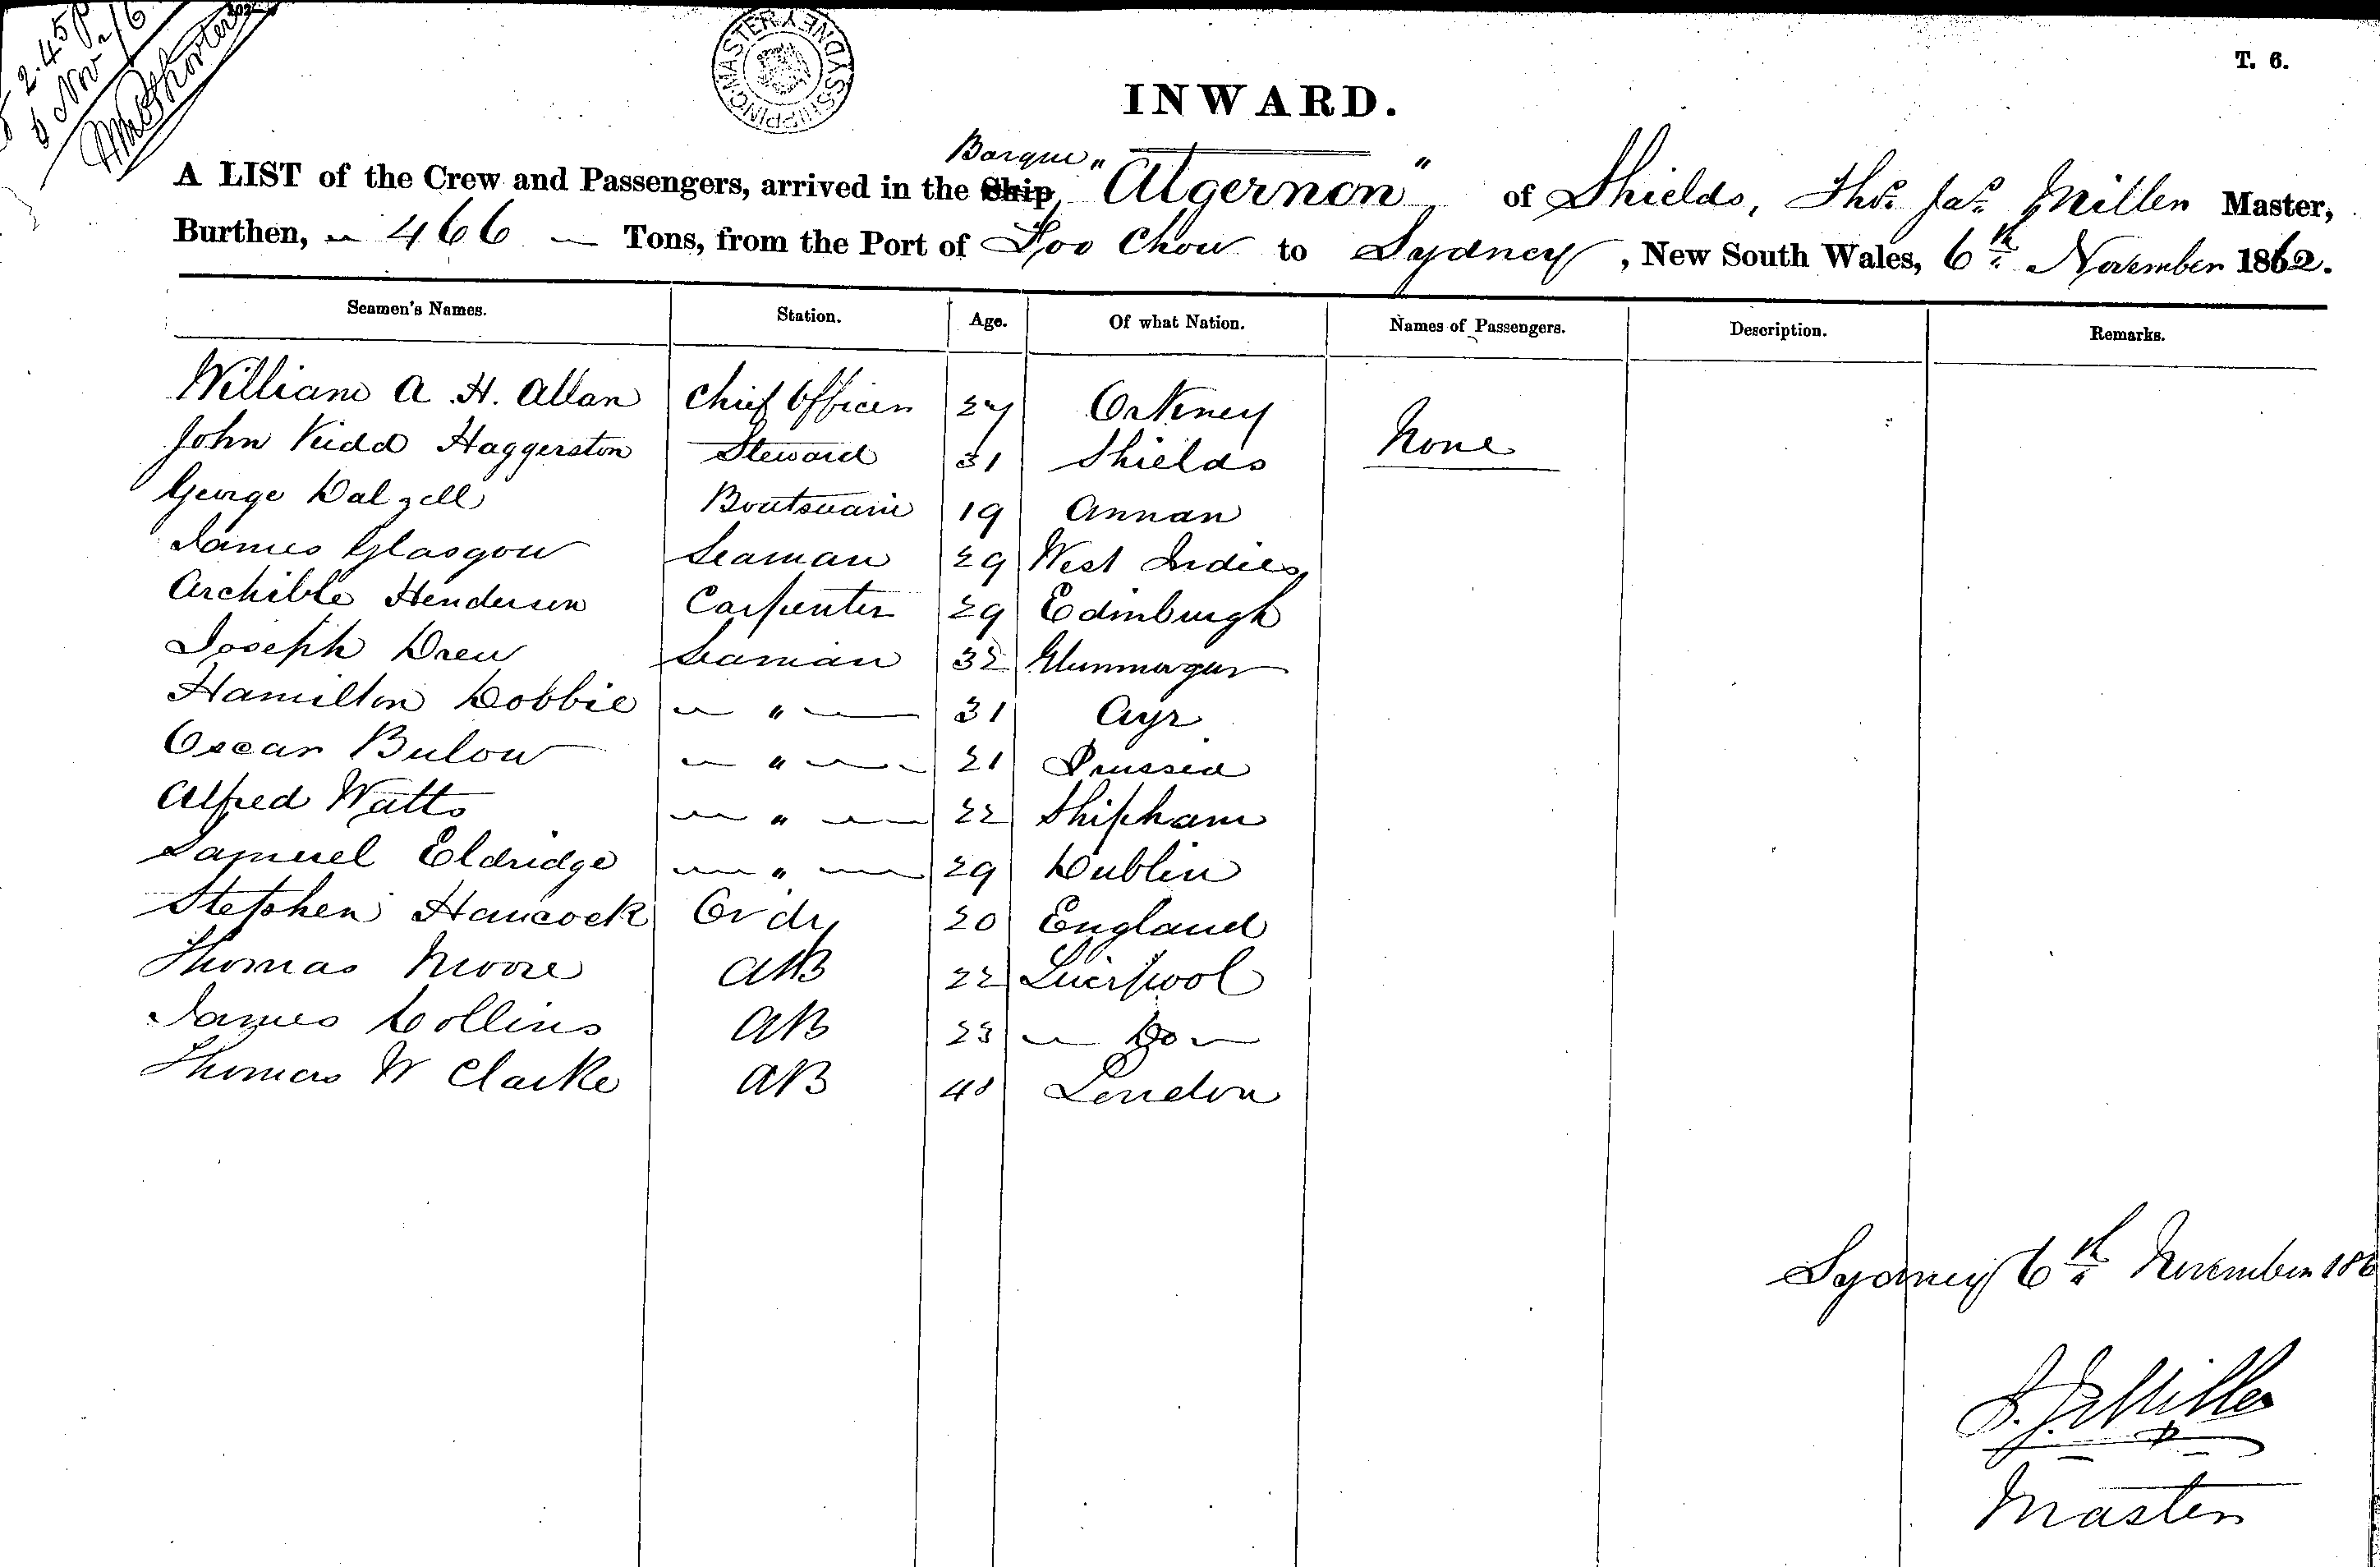 2.45 P
6 Nov. /6
SHIPPING MASTER SYDNEY
T. 6.
INWARD.
Barque
A LIST of the Crew and Passengers, arrived in the Ship "Algernon" of Shields, Thos. Jas. Miller Master,
Burthen, 466 Tons, from the Port of Foo Chow to Sydney, New South Wales, 6th November 1862.
Seamen's Names. Station. Age. Of what Nation. Names of Passengers. Description. Remarks.
William A. H. Allan Chief Officer 27 Orkney None
John Kidd Haggerston Steward 31 Shields
George Dalzell Boatswain 19 Annan
James Glasgow Seaman 29 West Indies
Archible Henderson Carpenter 29 Edinburgh
Joseph Drew Seaman 32
Hamilton Dobbie " 31 Ayr
Oscar Bulow " 21 Prussia
Alfred Watts " 22 Shipham
Samuel Eldridge " 29 Dublin
Stephen Hancock Ordy 20 England
Thomas Moore AB 22 Liverpool
James Collins AB 23 Do
Thomas W Clarke AB London
Sydney 6th November 186
T. J. Miller
Master